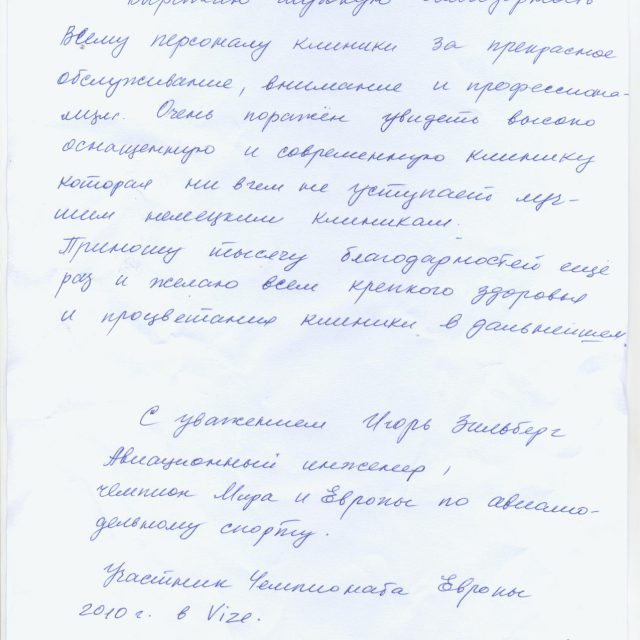 Выражаю глубокую благодарность
Всему персоналу клиники за прекрасное
обслуживание, внимание и профессиона-
лизм. Очень поражён увидеть высоко
оснащенную и современную клинику
которая ни в чем не уступает луч-
шим немецким клиникам.
Приношу тысячу благодарностей ещё
раз и желаю всем крепкого здоровья
и процветания клиники в дальнейшем.
С уважением Игорь Зильберг
Авиационный инженер,
чемпион Мира и Европы по авиамо-
дельному спорту.
Участник Чемпионата Европы
2010 г. в Vize.